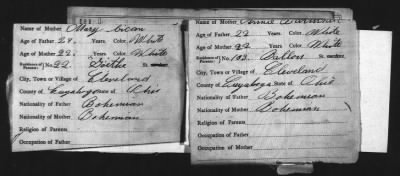 Name of Mother Mary Cican
Age of Father 28. Years. Color, White
Age of Mother 22. Years. Color White
Residence of Parents: No. 22. St.
City, Town or Village of Cleveland
County of Cuyahoga State of Ohio
Nationality of Father Bohemian
Nationality of Mother Bohemian
Religion of Parents
Occupation of Father
Name of Mother Annie
Age of Father 22 Years. Color, White
Age of Mother 22 Years. Color, White
Residence of Parents: No. 103. Butler St.
City, Town or Village of Cleveland
County of Cuyahoga State of Ohio
Nationality of Father Bohemian
Nationality of Mother Bohemian
Religion of Parents
Occupation of Father
Occupation of Mother